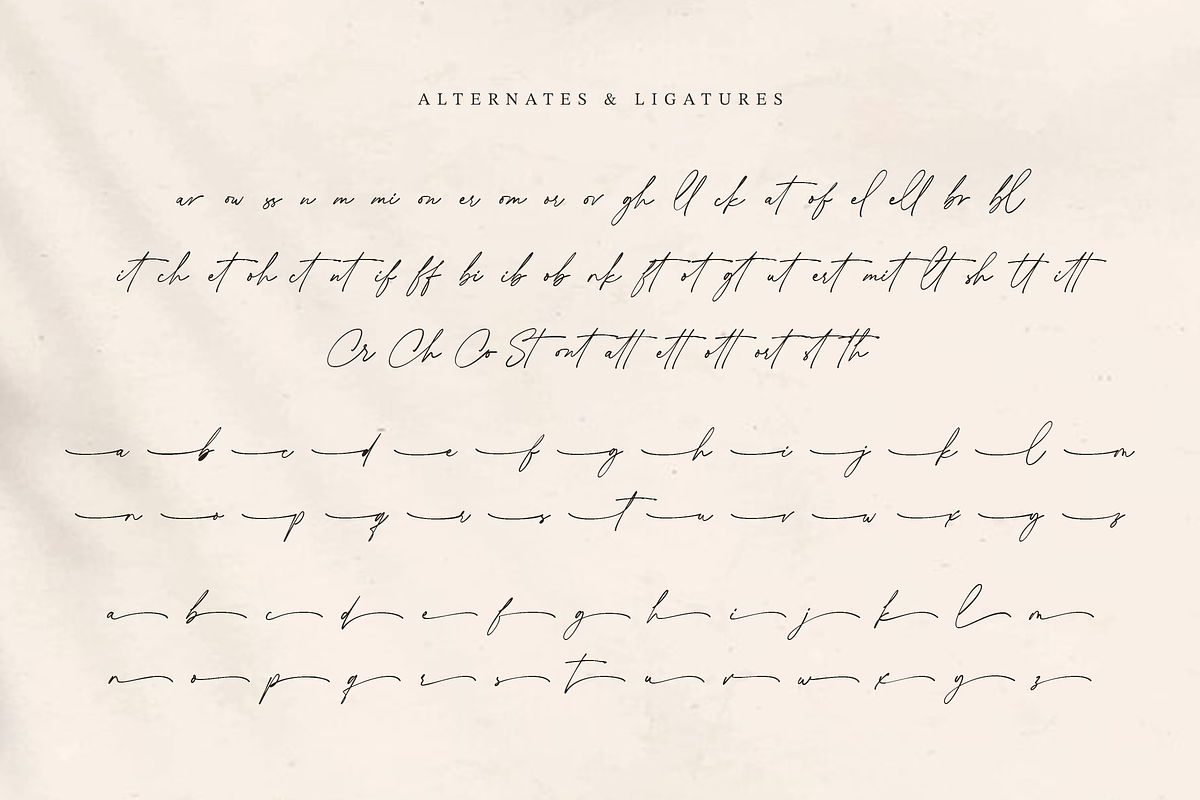 ALTERNATES & LIGATURES
ar ow ss n m mi on er om or ov gh ll ck at of el ell br bl
it ch et oh ct nt if ff bi ib ob nk ft ot gt ut ert mit lt sh tt itt
Cr Ch Co St ont att ett ott ort st th
a b c d e f g h i j k l m
n o p q r s t u v w x y z
a b c d e f g h i j k l m
n o p q r s t u v w x y z